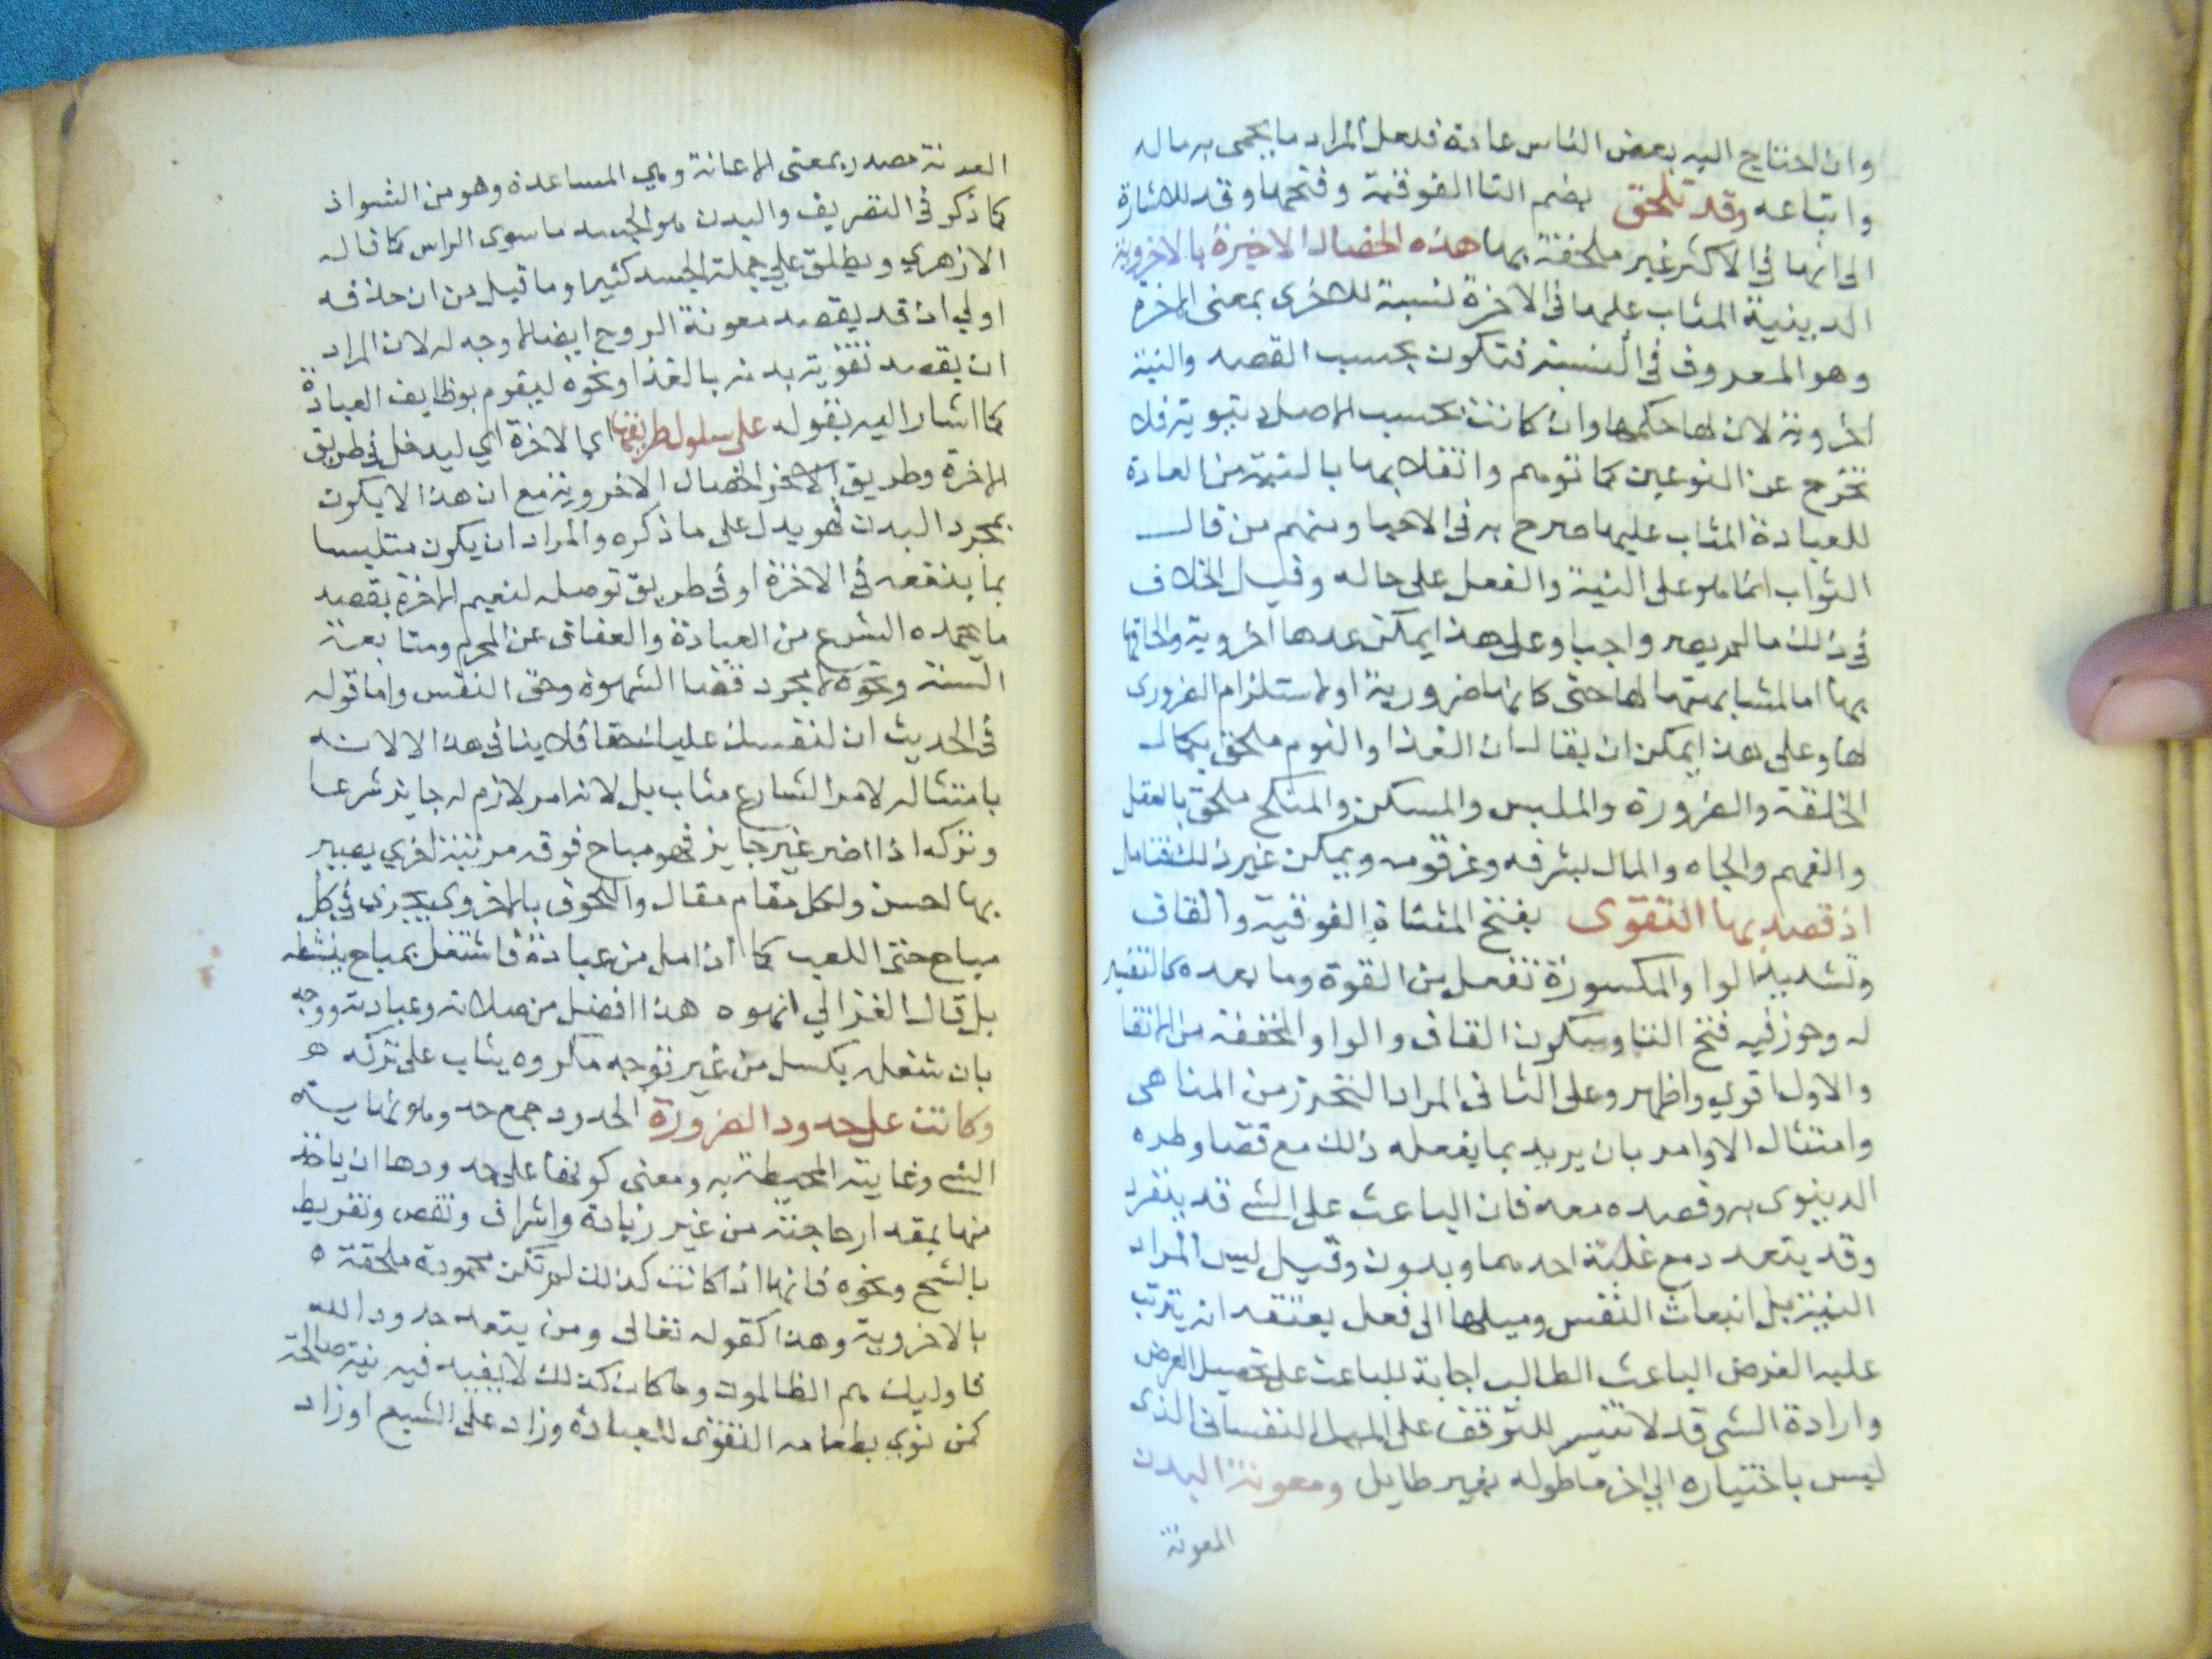 وان احتاج اليه بعض الناس عادة فلعل المراد ما يحمى به ماله
واتباعه وقد تلحق بضم التا الفوقية وفتحها وقد للاشارة
الى انها في الاكثر غير ملحقة بها هذه الخصال الاخيرة بالاخروية
الدينية المثاب عليها في الاخرة نسبة للاخرى بمعنى الاخرة
وهو المعروف في النسبة فتكون بحسب القصد والنية
اخروية لان لها حكمها وان كانت بحسب الاصل دنيوية فلا
تخرج عن النوعين كما توهم وانقلابها بالنية من العادة
للعبادة المثاب عليها صرح به في الاحيا ومنهم من قال
الثواب انما هو على النية والفعل على حاله وقيل الخلاف
في ذلك ما لم يصر واجبا وعلى هذا يمكن عدها اخروية والحاقها
بها اما لمشابهتها لها حتى كانها ضرورية او لاستلزام الضرورى
لها وعلى هذا يمكن ان يقال ان الغذا والنوم ملحق بكمال
الخلقة والضرورة والملبس والمسكن والمنكح ملحق بالعقل
والفهم والجاه والمال لشرفه وعز قومه ويمكن غير ذلك فتامل
اذ قصد بها التقوى بفتح المثناة الفوقية والقاف
وتشديد الواو المكسورة تفعل من القوة وما بعده كالتفسير
له وجوز فيه فتح التا وسكون القاف والواو المخففة من الاتقا
والاول اقوي واظهر وعلى الثاني المراد التحرز من المناهى
وامتثال الاوامر بان يريد بما يفعله ذلك مع قضا وطره
الدينوى به وقصده معه فان الباعث على الشي قد ينفرد
وقد يتعدد مع غلبة احدهما وبدون وقيل ليس المراد
النية بل انبعاث النفس وميلها الى فعل يعتقد انه يترتب
عليه الغرض الباعث الطالب اجابة للباعث على تحصيل الغرض
وارادة الشى قد لا تتيسر للتوقف على الميل النفسانى الذى
ليس باختياره الي اخر ما طوله بغير طايل ومعونة البدن
المعونة
العونة مصدر بمعنى الاعانة وهي المساعدة وهو من الشواذ
كما ذكر في التصريف والبدن هو الجسد ما سوى الراس كما قاله
الازهري ويطلق علي جملة الجسد كثيرا وما قيل من ان حذفه
اولي اذ قد يقصد معونة الروح ايضا لا وجه له لان المراد
ان يقصد تقوية بدنه بالغذا ونحوه ليقوم بوظايف العبادة
كما اشار اليه بقوله على سلوك طريقها اي الاخرة اي ليدخل في طريق
الاخرة وطريق الاخر الخصال الاخروية مع ان هذا لا يكون
بمجرد البدن فهو يدل على ما ذكره والمراد ان يكون متلبسا
بما ينفعه في الاخرة او في طريق توصله لنعيم الاخرة بقصد
ما يحمده الشرع من العبادة والعفاف عن المحرم ومتابعة
السنة ونحوه لا لمجرد قضا الشهوة وحق النفس واما قوله
في الحديث ان لنفسك عليك حقا فلا ينافي هذا لا لانه
بامتثاله لامر الشارع مثاب بل لانه امر لازم له جايز شرعا
وتركه اذا اضر غير جايز فهو مباح فوقه مرتبة اخري يصير
بها احسن ولكل مقام مقال واللحوق بالاخروى يجري في كل
مباح حتى اللعب كما اذا مل من عبادة فاشتغل بمباح ينشطه
بل قال الغزالي ان لهوه هذا افضل من صلاته وعبادته ووجه
بان تنفله بكسل من غير توجه مكروه يثاب على تركه ھ
وكانت على حدود الضرورة الحدود جمع حد وهو نهاية
الشي وغايته المحيطة به ومعنى كونها على حدودها ان ياخذ
منها بمقدار حاجته من غير زيادة واسراف ونقص وتفريط
بالشح ونحوه فانها اذا كانت كذلك لم تكن محمودة ملحقة ه
بالاخروية وهذا كقوله تعالى ومن يتعد حدود الله
فاوليك هم الظالمون وما كان كذلك لا يفيد فيه نية صالحة
كمن نوي بطعامه التقوى للعبادة وزاد على الشبع او زاد